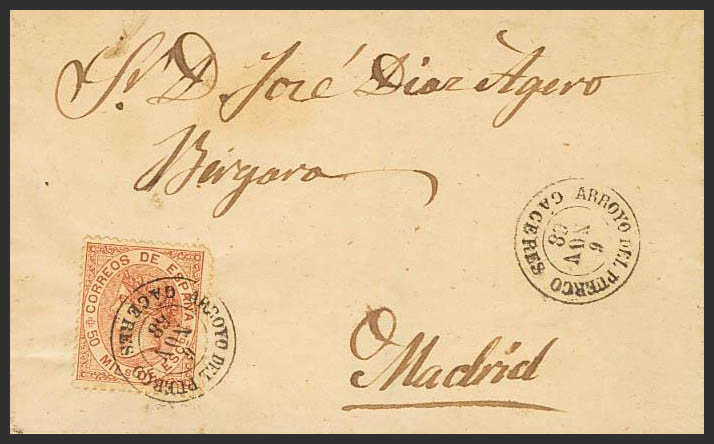 Sr. D. José Diaz Agero
Bérgara
ARROYO DEL PUERCO
CACERES
9
Madrid
CORREOS DE ESPAÑA
50 MILS
ARROYO DEL PUERCO
CACERES